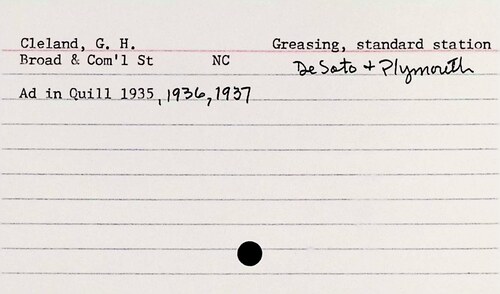 Cleland, G. H. Greasing, standard station
Broad & Com'l St NC DeSoto + Plymouth
Ad in Quill 1935, 1936, 1937